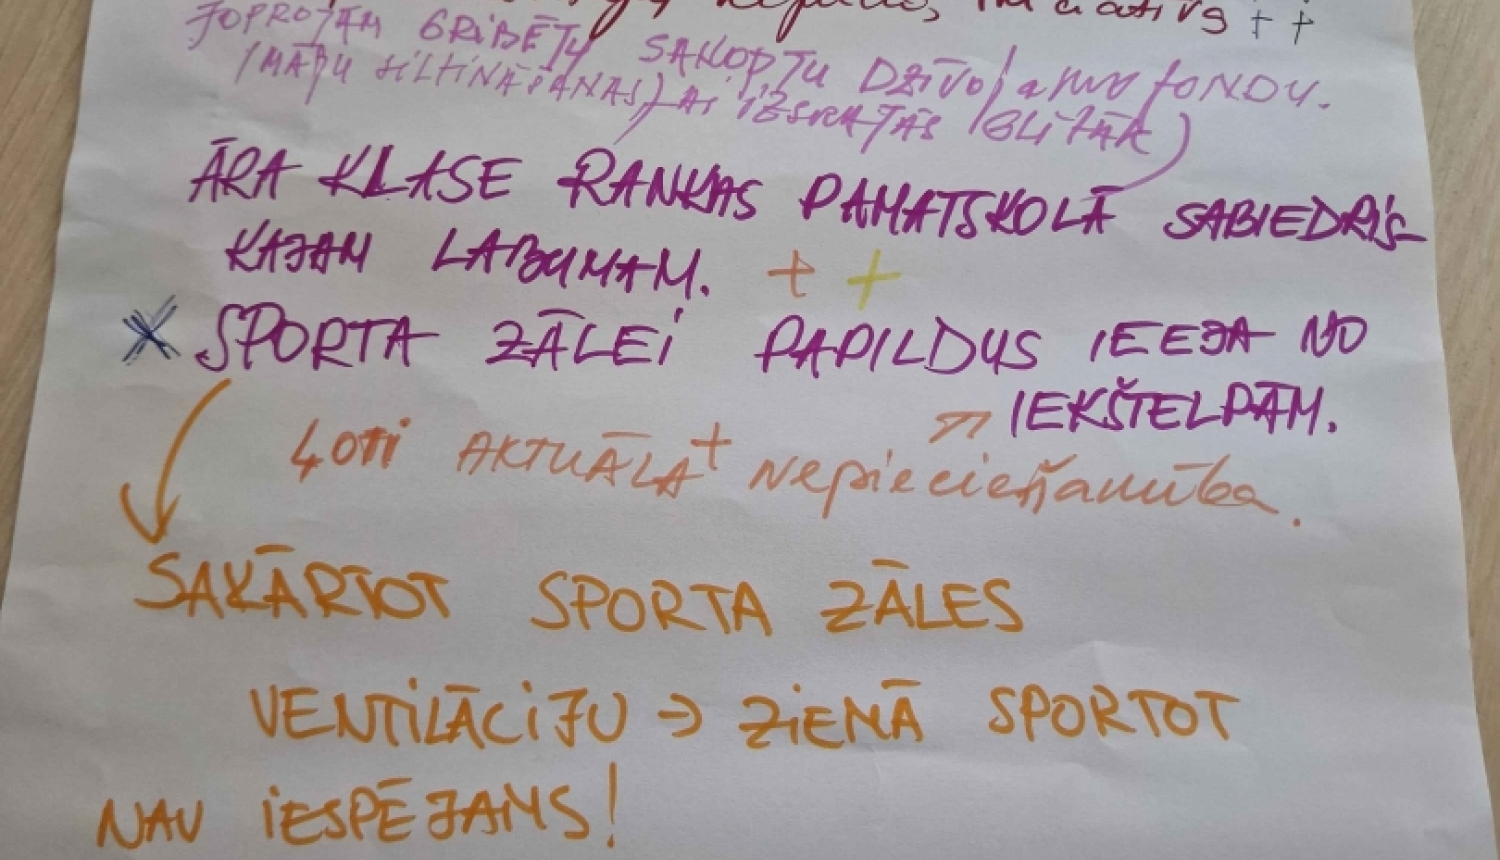 iniciatīvs ++
JOPROJĀM GRIBĒTU SAKOPTU DZĪVOJAMO FONDU.
(MĀJU SILTINĀŠANAS, LAI IZSKATĀS GLĪTĀK)
ĀRA KLASE RANKAS PAMATSKOLĀ SABIEDRIS-
KAJAM LABUMAM. + +
SPORTA ZĀLEI PAPILDUS IEEJA NO
IEKŠTELPĀM.
ĻOTI AKTUĀLA + nepieciešamība.
SAKĀRTOT SPORTA ZĀLES
VENTILĀCIJU → ZIEMĀ SPORTOT
NAV IESPĒJAMS!